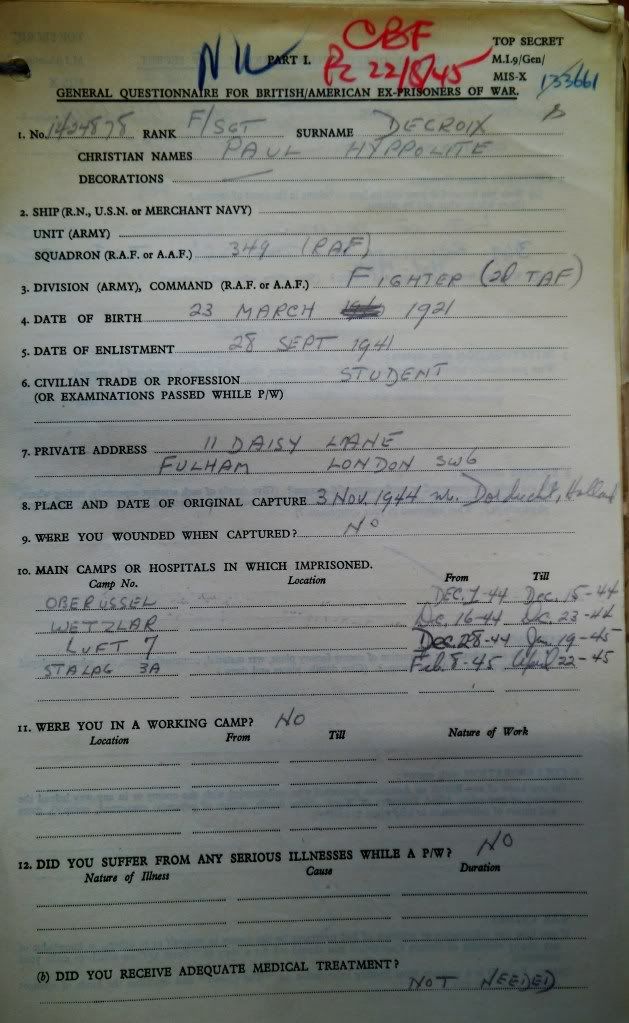 CBF
TOP SECRET
Nil PART I. Pz 22/8/45 M.I.9/Gen/
MIS-X 133661
GENERAL QUESTIONNAIRE FOR BRITISH/AMERICAN EX-PRISONERS OF WAR.
1. No. 1424878 RANK F/SGT SURNAME DECROIX
CHRISTIAN NAMES PAUL HYPPOLITE
DECORATIONS —
2. SHIP (R.N., U.S.N. or MERCHANT NAVY)
UNIT (ARMY)
SQUADRON (R.A.F. or A.A.F.) 349 (RAF)
3. DIVISION (ARMY), COMMAND (R.A.F. or A.A.F.) FIGHTER (2d TAF)
4. DATE OF BIRTH 23 MARCH 1921
5. DATE OF ENLISTMENT 28 SEPT 1941
6. CIVILIAN TRADE OR PROFESSION STUDENT
(OR EXAMINATIONS PASSED WHILE P/W)
7. PRIVATE ADDRESS 11 DAISY LANE
FULHAM LONDON SW6
8. PLACE AND DATE OF ORIGINAL CAPTURE 3 Nov. 1944 nr. Dordrecht, Holland
9. WERE YOU WOUNDED WHEN CAPTURED? NO
10. MAIN CAMPS OR HOSPITALS IN WHICH IMPRISONED.
Camp No. Location From Till
OBERUSSEL DEC. 1-44 Dec. 15-44
WETZLAR Dec. 16-44 Dec. 23-44
LUFT 7 Dec. 28-44 Jan. 19-45
STALAG 3A Feb. 8-45 April 22-45
11. WERE YOU IN A WORKING CAMP? NO
Location From Till Nature of Work
12. DID YOU SUFFER FROM ANY SERIOUS ILLNESSES WHILE A P/W? NO
Nature of Illness Cause Duration
(b) DID YOU RECEIVE ADEQUATE MEDICAL TREATMENT?
NOT NEEDED